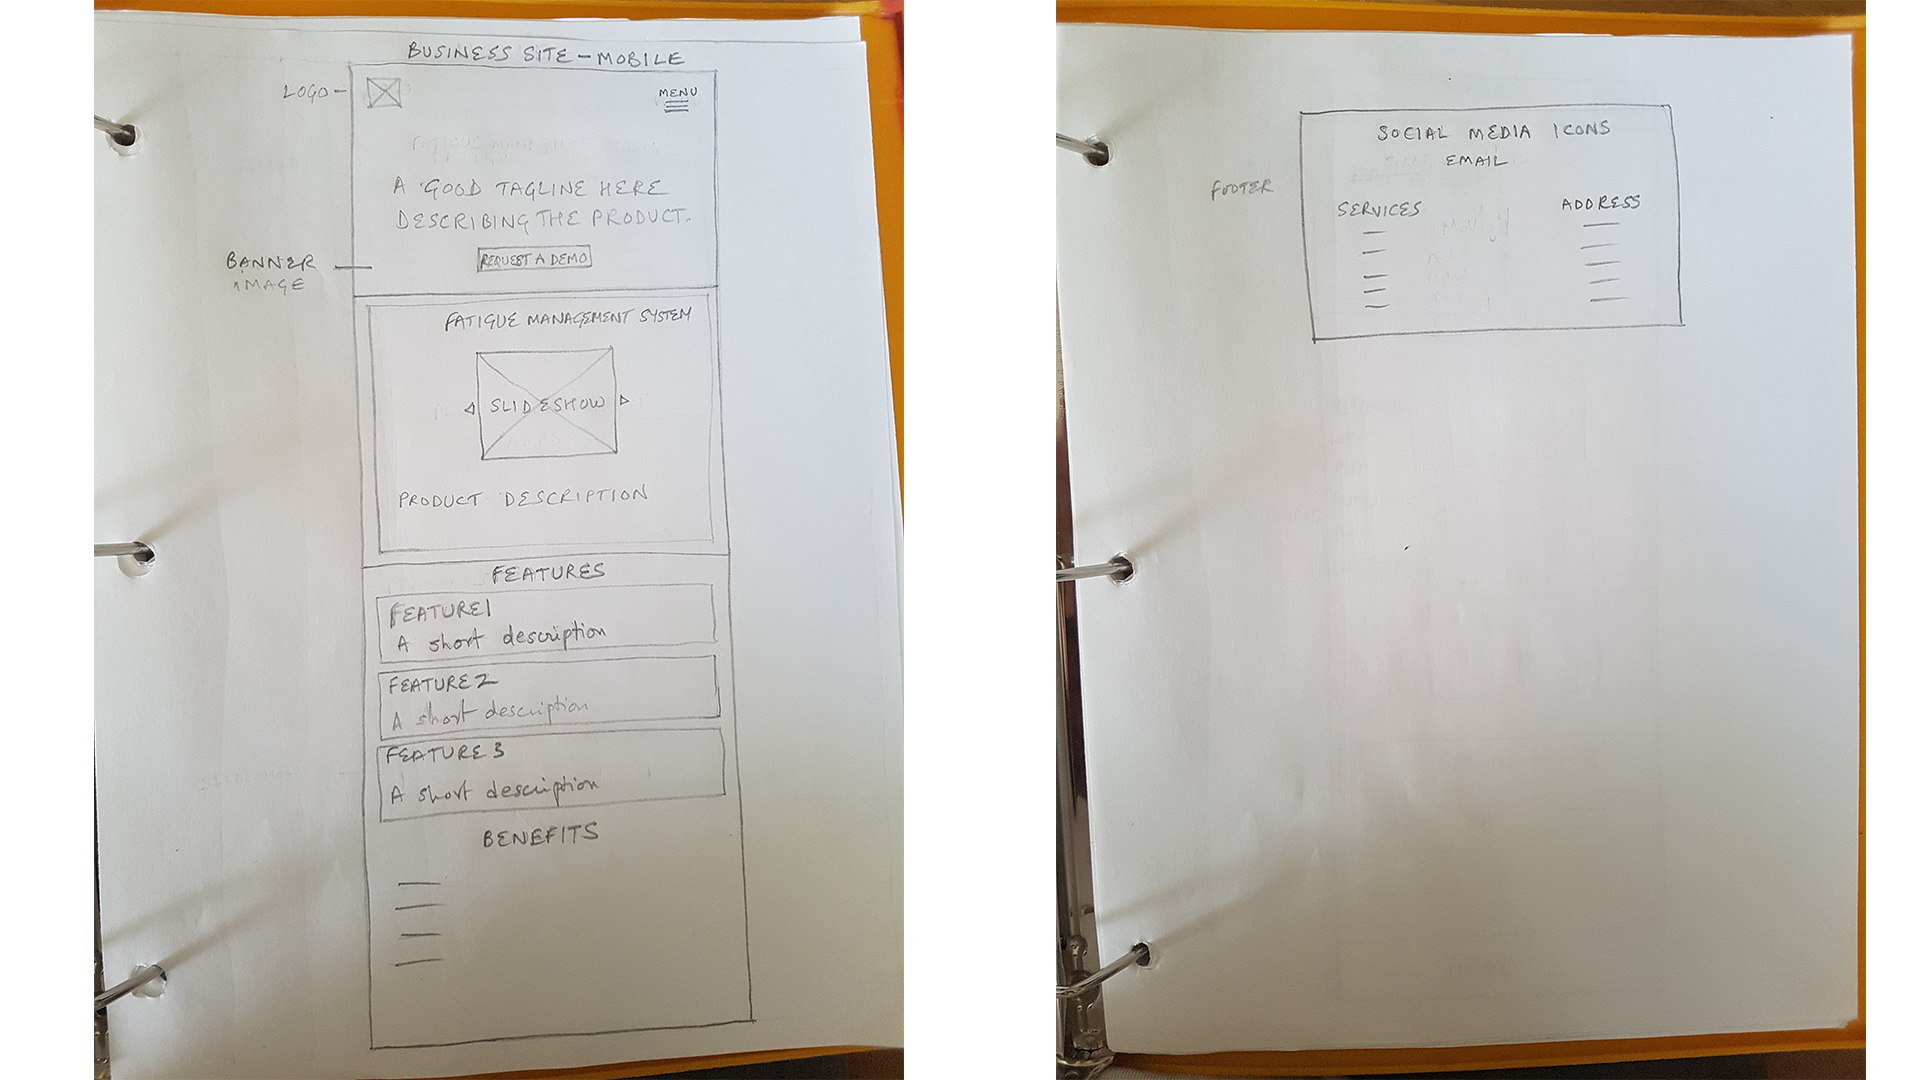 BUSINESS SITE - MOBILE
LOGO
MENU
A GOOD TAGLINE HERE
DESCRIBING THE PRODUCT.
REQUEST A DEMO
BANNER
IMAGE
FATIGUE MANAGEMENT SYSTEM
SLIDESHOW
PRODUCT DESCRIPTION
FEATURES
FEATURE 1
A short description
FEATURE 2
A short description
FEATURE 3
A short description
BENEFITS
SOCIAL MEDIA ICONS
EMAIL
FOOTER
SERVICES
ADDRESS